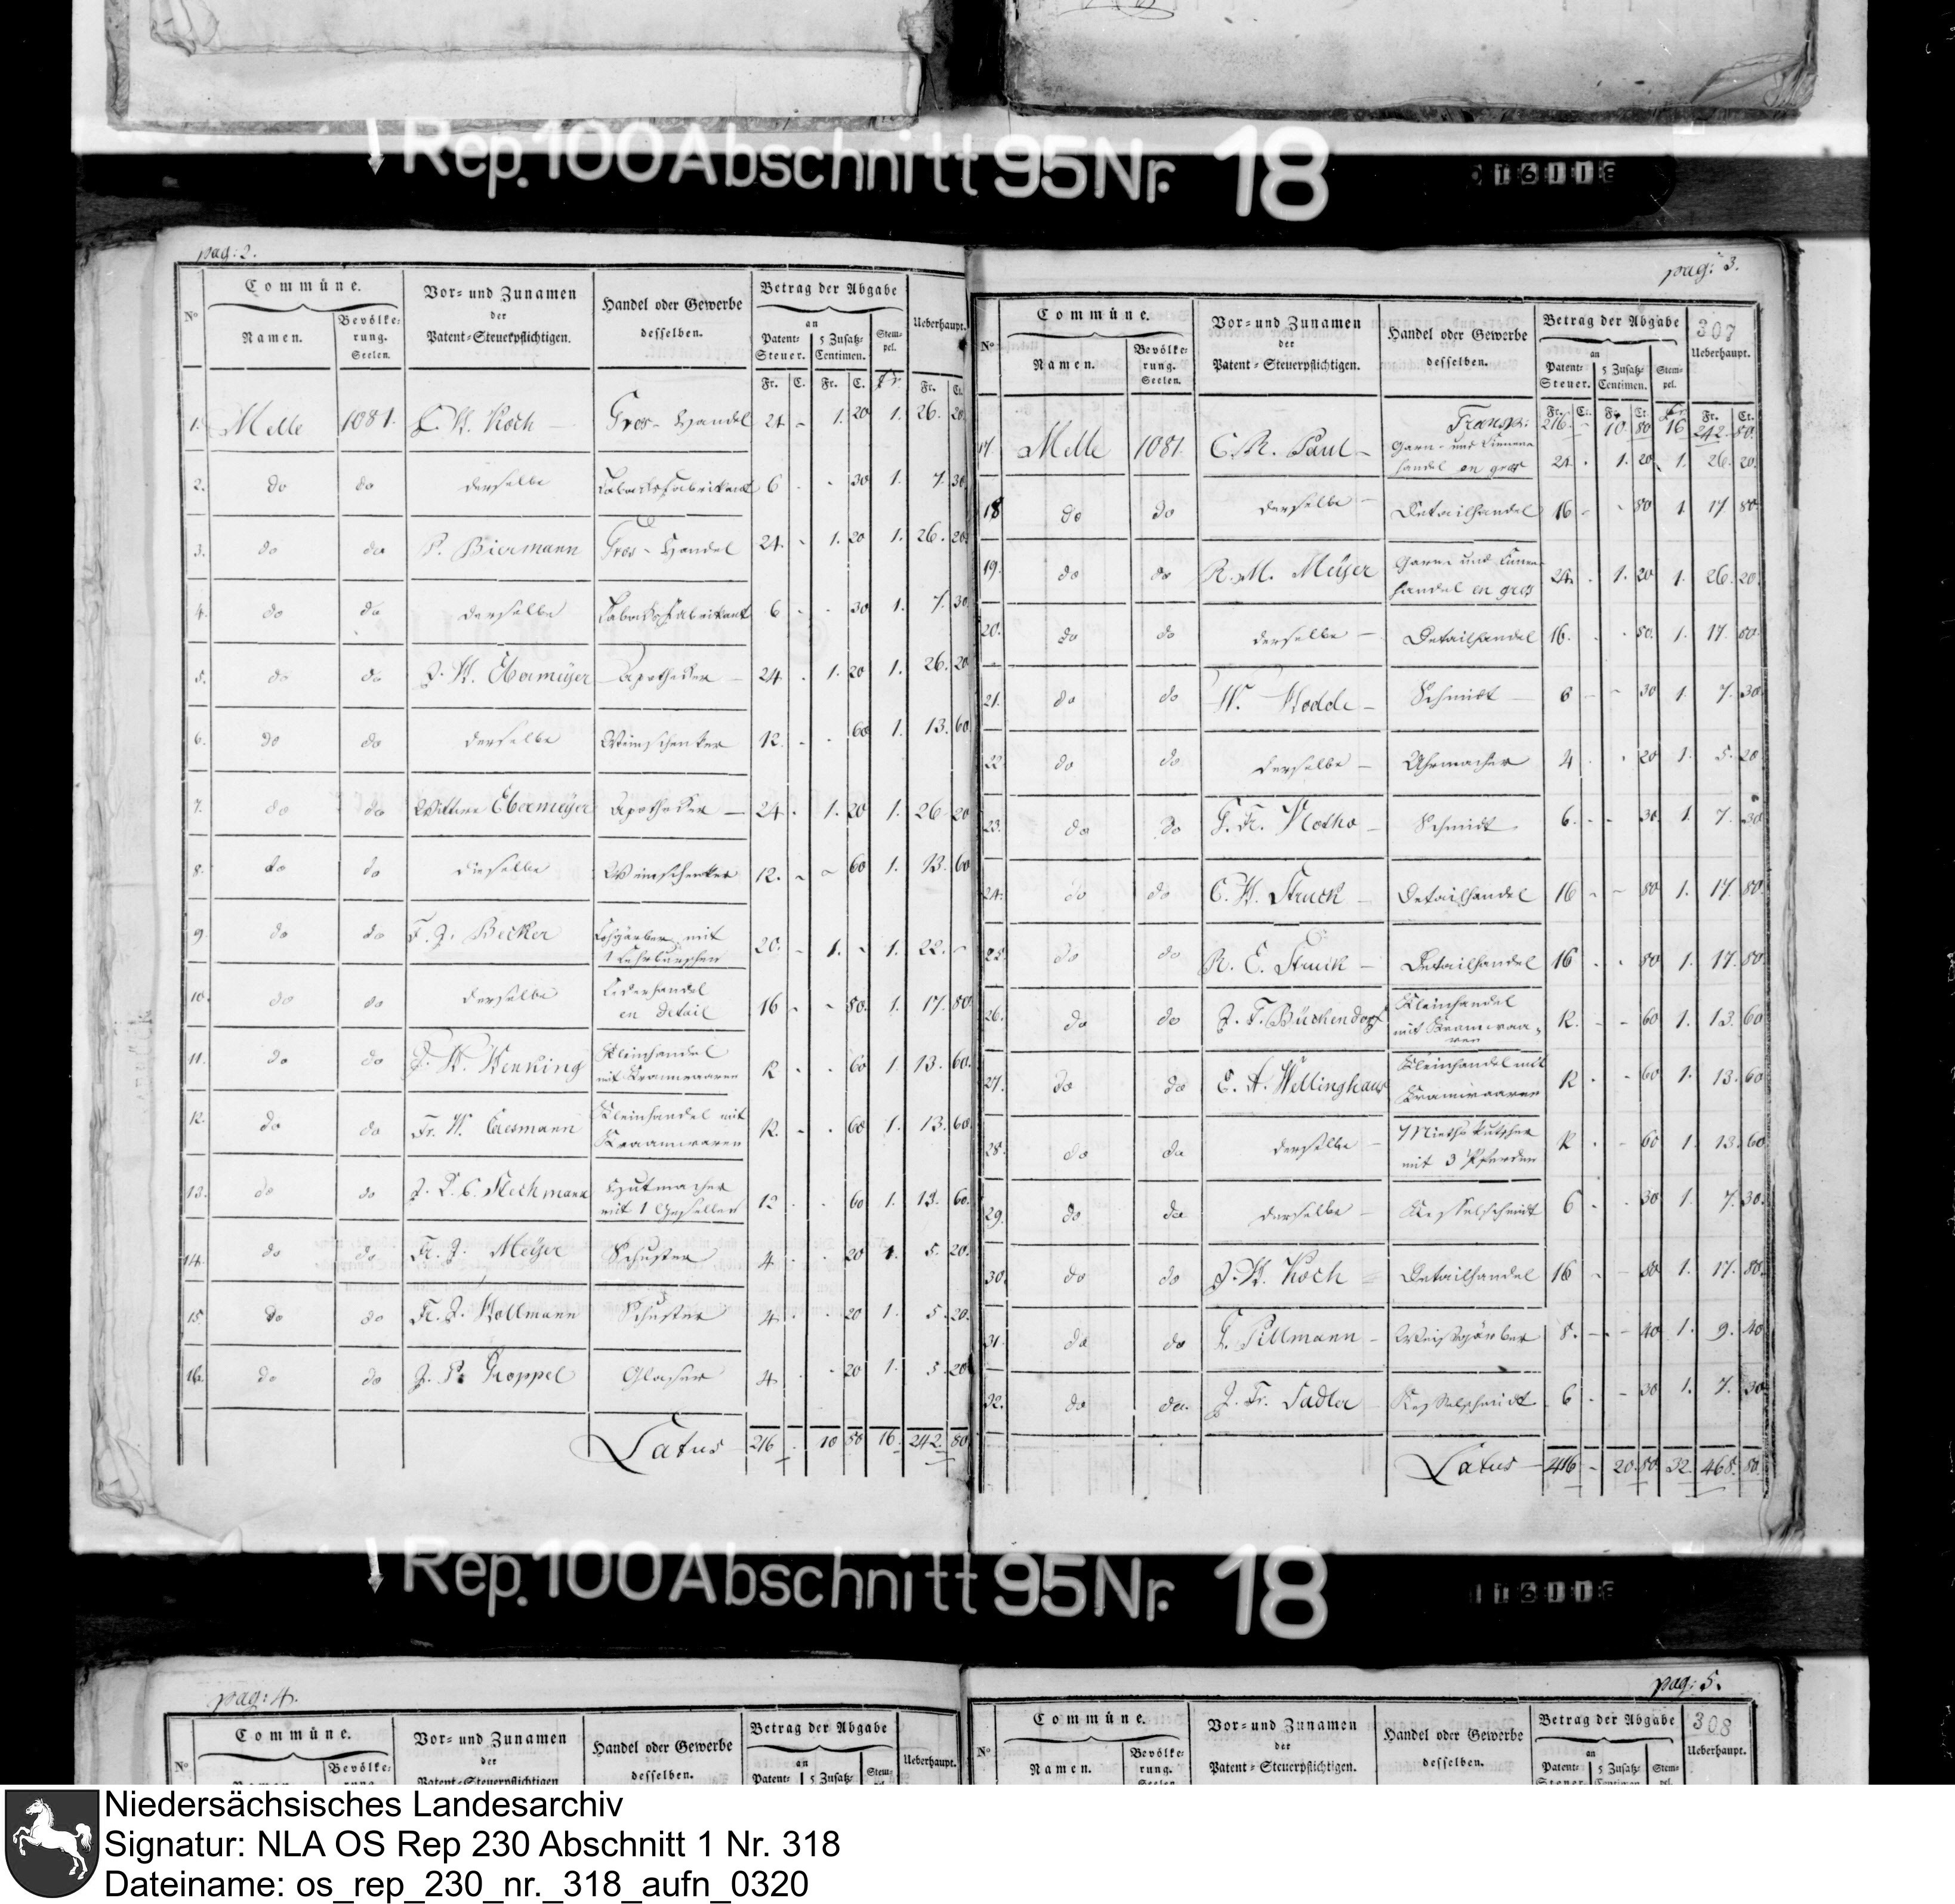 Rep. 100 Abschnitt 95 Nr. 18
pag: 2.
Nº Commüne. Vor- und Zunamen der Patent-Steuerpflichtigen. Handel oder Gewerbe desselben. Betrag der Abgabe Ueberhaupt.
Namen. Bevölkerung. Seelen. an Patent-Steuer. 5 Zusatz-Centimen. Stempel.
Fr. C. Fr. C. Fr. Fr. Ct.
1. Melle 1081. Koch Gros-Handel 24 - 1. 20 1. 26. 20
2. do do derselbe Tabacksfabrikant 6 - - 30 1. 7. 30
3. do do P. Biermann Gros-Handel 24. - 1. 20 1. 26. 20
4. do do derselbe Tabacksfabrikant 6 - - 30 1. 7. 30
5. do do J. H. Ebermeyer Apotheker 24. - 1. 20 1. 26. 20
6. do do derselbe Weinschenker 12. - - 60 1. 13. 60
7. do do Wittwe Ebermeyer Apotheker 24. - 1. 20 1. 26 20
8. do do dieselbe Weinschenker 12. - - 60 1. 13. 60
9 do do F. J. Becker Lohgärber mit
1 Lehrburschen 20. - 1. - 1. 22. -
10. do do derselbe Lederhandel
en Detail 16 - - 80. 1. 17. 80
11. do do J. H. Henning Kleinhandel
mit Kramwaaren 12 - - 60 1. 13. 60.
12. do do Fr. W. Kleinhandel mit
Kraamwaren 12. - - 60 1. 13. 60
13. do do J. L. C. Stechmann Hutmacher
mit 1 Gesellen 12 - - 60 1. 13. 60.
14. do do Fr. J. Meyer Schuster 4 - - 20 1. 5. 20.
15. do do Fr. J. Hollmann Schuster 4 - - 20 1. 5. 20.
16. do do J. P. Groppel Glaser 4 - - 20 1. 5 20
Latus 216 - 10 80 16. 242. 80
pag: 3.
307
Nº Commüne. Vor- und Zunamen der Patent-Steuerpflichtigen. Handel oder Gewerbe desselben. Betrag der Abgabe Ueberhaupt.
Namen. Bevölkerung. Seelen. an Patent-Steuer. 5 Zusatz-Centimen. Stempel.
Fr. Ct. Fr. Ct. Fr. Fr. Ct.
Transp: 216. - 10. 80 16 242. 80.
17. Melle 1081. C. R. Paul Garn- und Linnenhandel en gros 24. - 1. 20. 1. 26. 20.
18 do do derselbe Detailhandel 16 - - 80 1. 17. 80.
19. do do R. M. Meyer Garn und Linnenhandel en gros 24. - 1. 20 1. 26. 20.
20. do do derselbe Detailhandel 16. - - 80. 1. 17. 80.
21. do do W. Hodde Schmidt 6 - - 30 1. 7. 30.
22 do do derselbe Uhrmacher 4 - - 20 1. 5. 20
23. do do G. Fr. Notho Schmidt 6. - - 30 1. 7. 30
24. do do C. H. Struck Detailhandel 16 - - 80 1. 17. 80.
25. do do R. E. Struck Detailhandel 16 - - 80 1. 17. 80
26. do do J. F. Bückendorf Kleinhandel
mit Kramwaaren 12. - - 60 1. 13. 60
27. do do E. A. Wellinghaus Kleinhandel mit
Kramwaaren 12 - - 60 1. 13. 60
28. do do derselbe Miethskutscher
mit 3 Pferden 12 - - 60 1. 13. 60
29. do do derselbe Kesselschmidt 6 - - 30 1. 7. 30.
30. do do J. H. Koch Detailhandel 16 - - 80 1. 17. 80.
31. do do Pellmann Weissgärber 8. - - 40 1. 9. 40
32. do do J. Fr. Sadler Kesselschmidt 6 - - 30 1. 7. 30
Latus 416 - 20. 80. 32. 468. 80.
Rep. 100 Abschnitt 95 Nr. 18
pag: 4.
Nº Commüne. Vor- und Zunamen der Patent-Steuerpflichtigen Handel oder Gewerbe desselben. Betrag der Abgabe Ueberhaupt.
an Patent- 5 Zusatz- Stem-
pag: 5.
308
Nº Commüne. Vor- und Zunamen der Patent-Steuerpflichtigen. Handel oder Gewerbe desselben. Betrag der Abgabe Ueberhaupt.
Namen. Bevölkerung. an Patent- 5 Zusatz- Stem-
Niedersächsisches Landesarchiv
Signatur: NLA OS Rep 230 Abschnitt 1 Nr. 318
Dateiname: os_rep_230_nr._318_aufn_0320